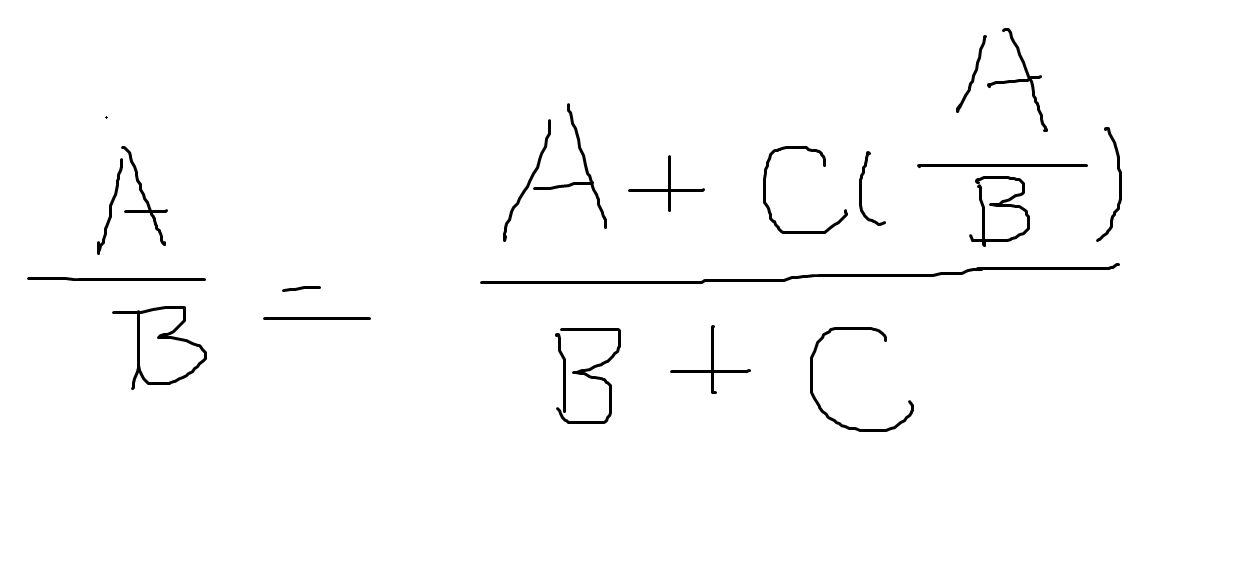 A/B = (A + C(A/B))/(B + C)